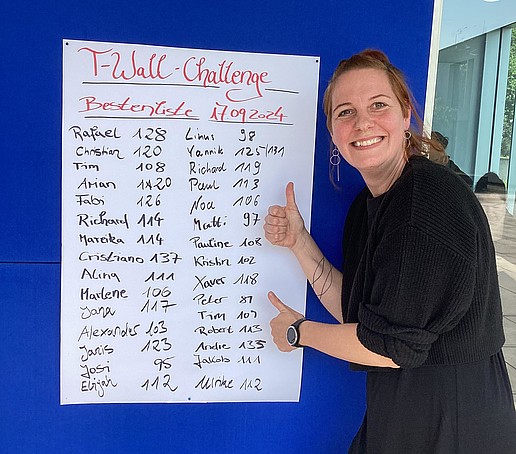 T-Wall-Challenge
Bestenliste 17.09.2024
Rafael 128
Christian 120
Tim 108
Arian 120
Fabi 126
Richard 114
Mareka 114
Cristiano 137
Alina 111
Marlene 106
Jana 117
Alexander 103
Janis 123
Josi 95
Elijah 112
Linus 98
Yannik 125 131
Richard 119
Paul 113
Noa 106
Matti 97
Pauline 108
Kristin 102
Xaver 118
Peter 81
Tim 107
Robert 113
Andre 135
Jakob 111
Ulrike 112